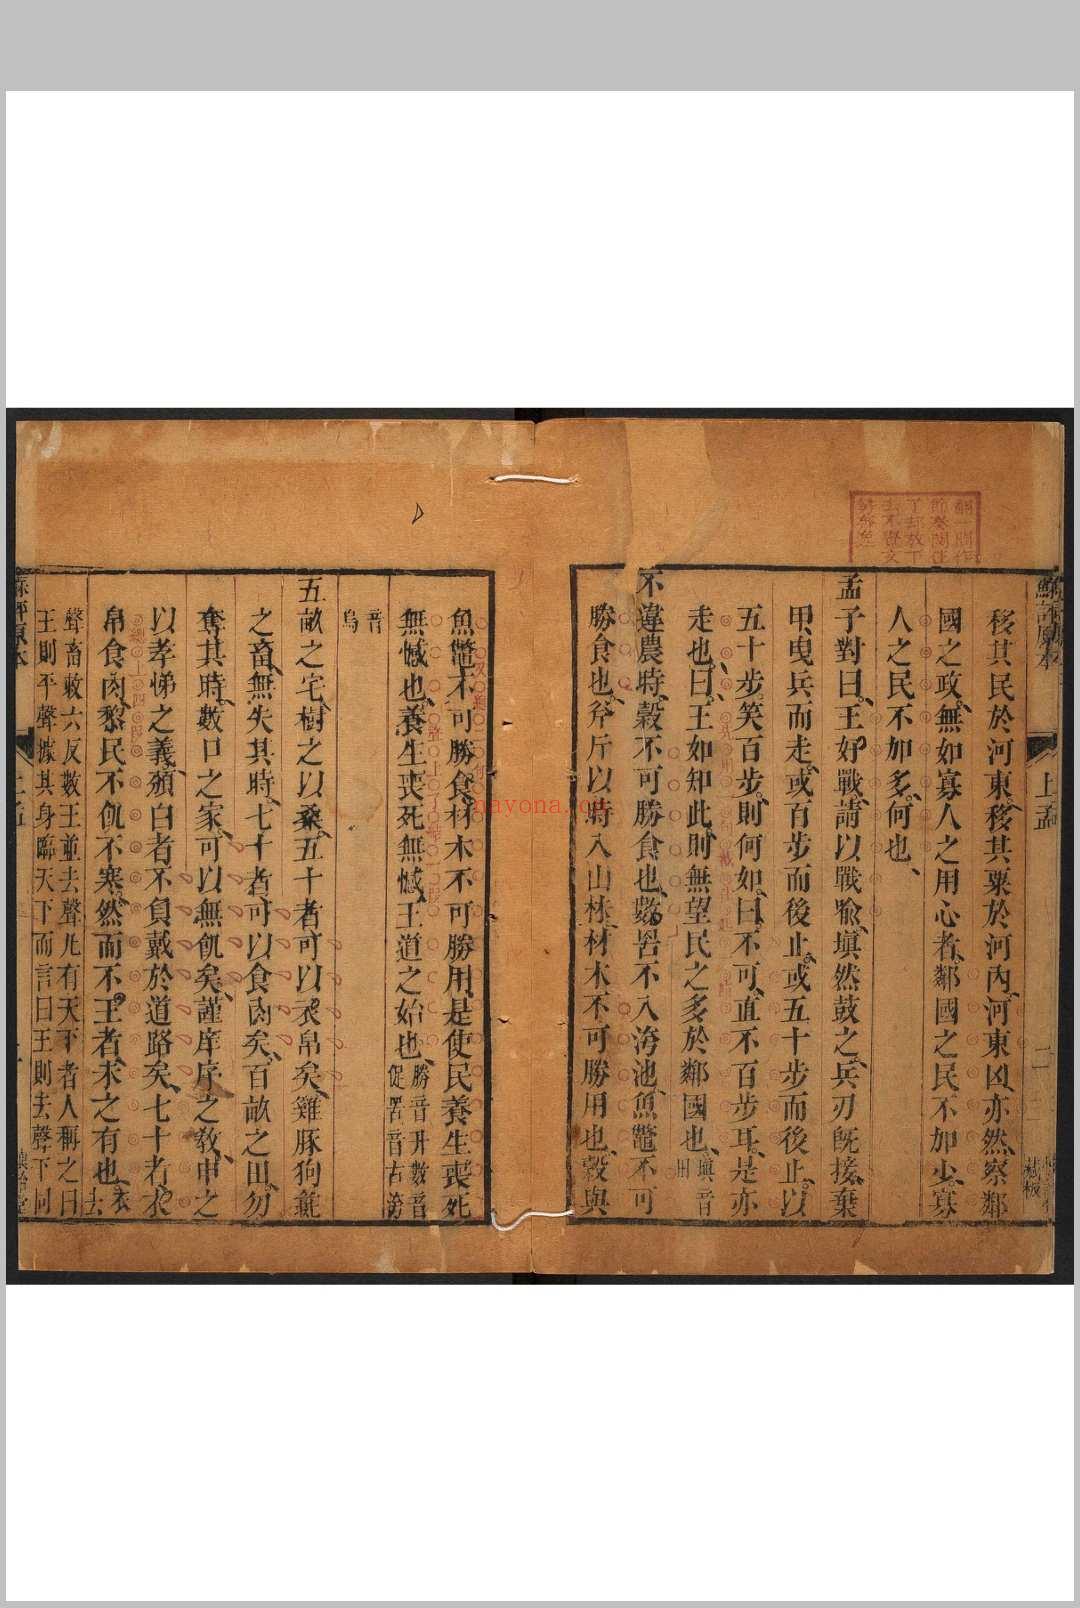 移其民於河東、移其粟於河內、河東凶亦然、察鄰
國之政、無如寡人之用心者、鄰國之民不加少、寡
人之民不加多、何也、
孟子對曰、王好戰、請以戰喻、塡然鼓之、兵刃既接、棄
甲曳兵而走、或百步而後止、或五十步而後止、以
五十步笑百步、則何如、曰、不可、直不百步耳、是亦
走也、曰、王如知此、則無望民之多於鄰國也、塡音
田
不違農時、穀不可勝食也、數罟不入洿池、魚鼈不可
勝食也、斧斤以時入山林、材木不可勝用也、穀與
魚鼈不可勝食、材木不可勝用、是使民養生喪死
無憾也、養生喪死無憾、王道之始也、勝音升數音
促罟音古洿
音
烏
五畝之宅、樹之以桑、五十者可以衣帛矣、雞豚狗彘
之畜、無失其時、七十者可以食肉矣、百畝之田、勿
奪其時、數口之家、可以無飢矣、謹庠序之教、申之
以孝悌之義、頒白者不負戴於道路矣、七十者衣
帛食肉、黎民不飢不寒、然而不王者、未之有也、衣
去
聲畜敕六反數王並去聲凡有天下者人稱之曰
王則平聲據其身臨天下而言曰王則去聲下同
蘇評原本
上孟
二
藏板
蘇評原本
上孟
nayona.cn